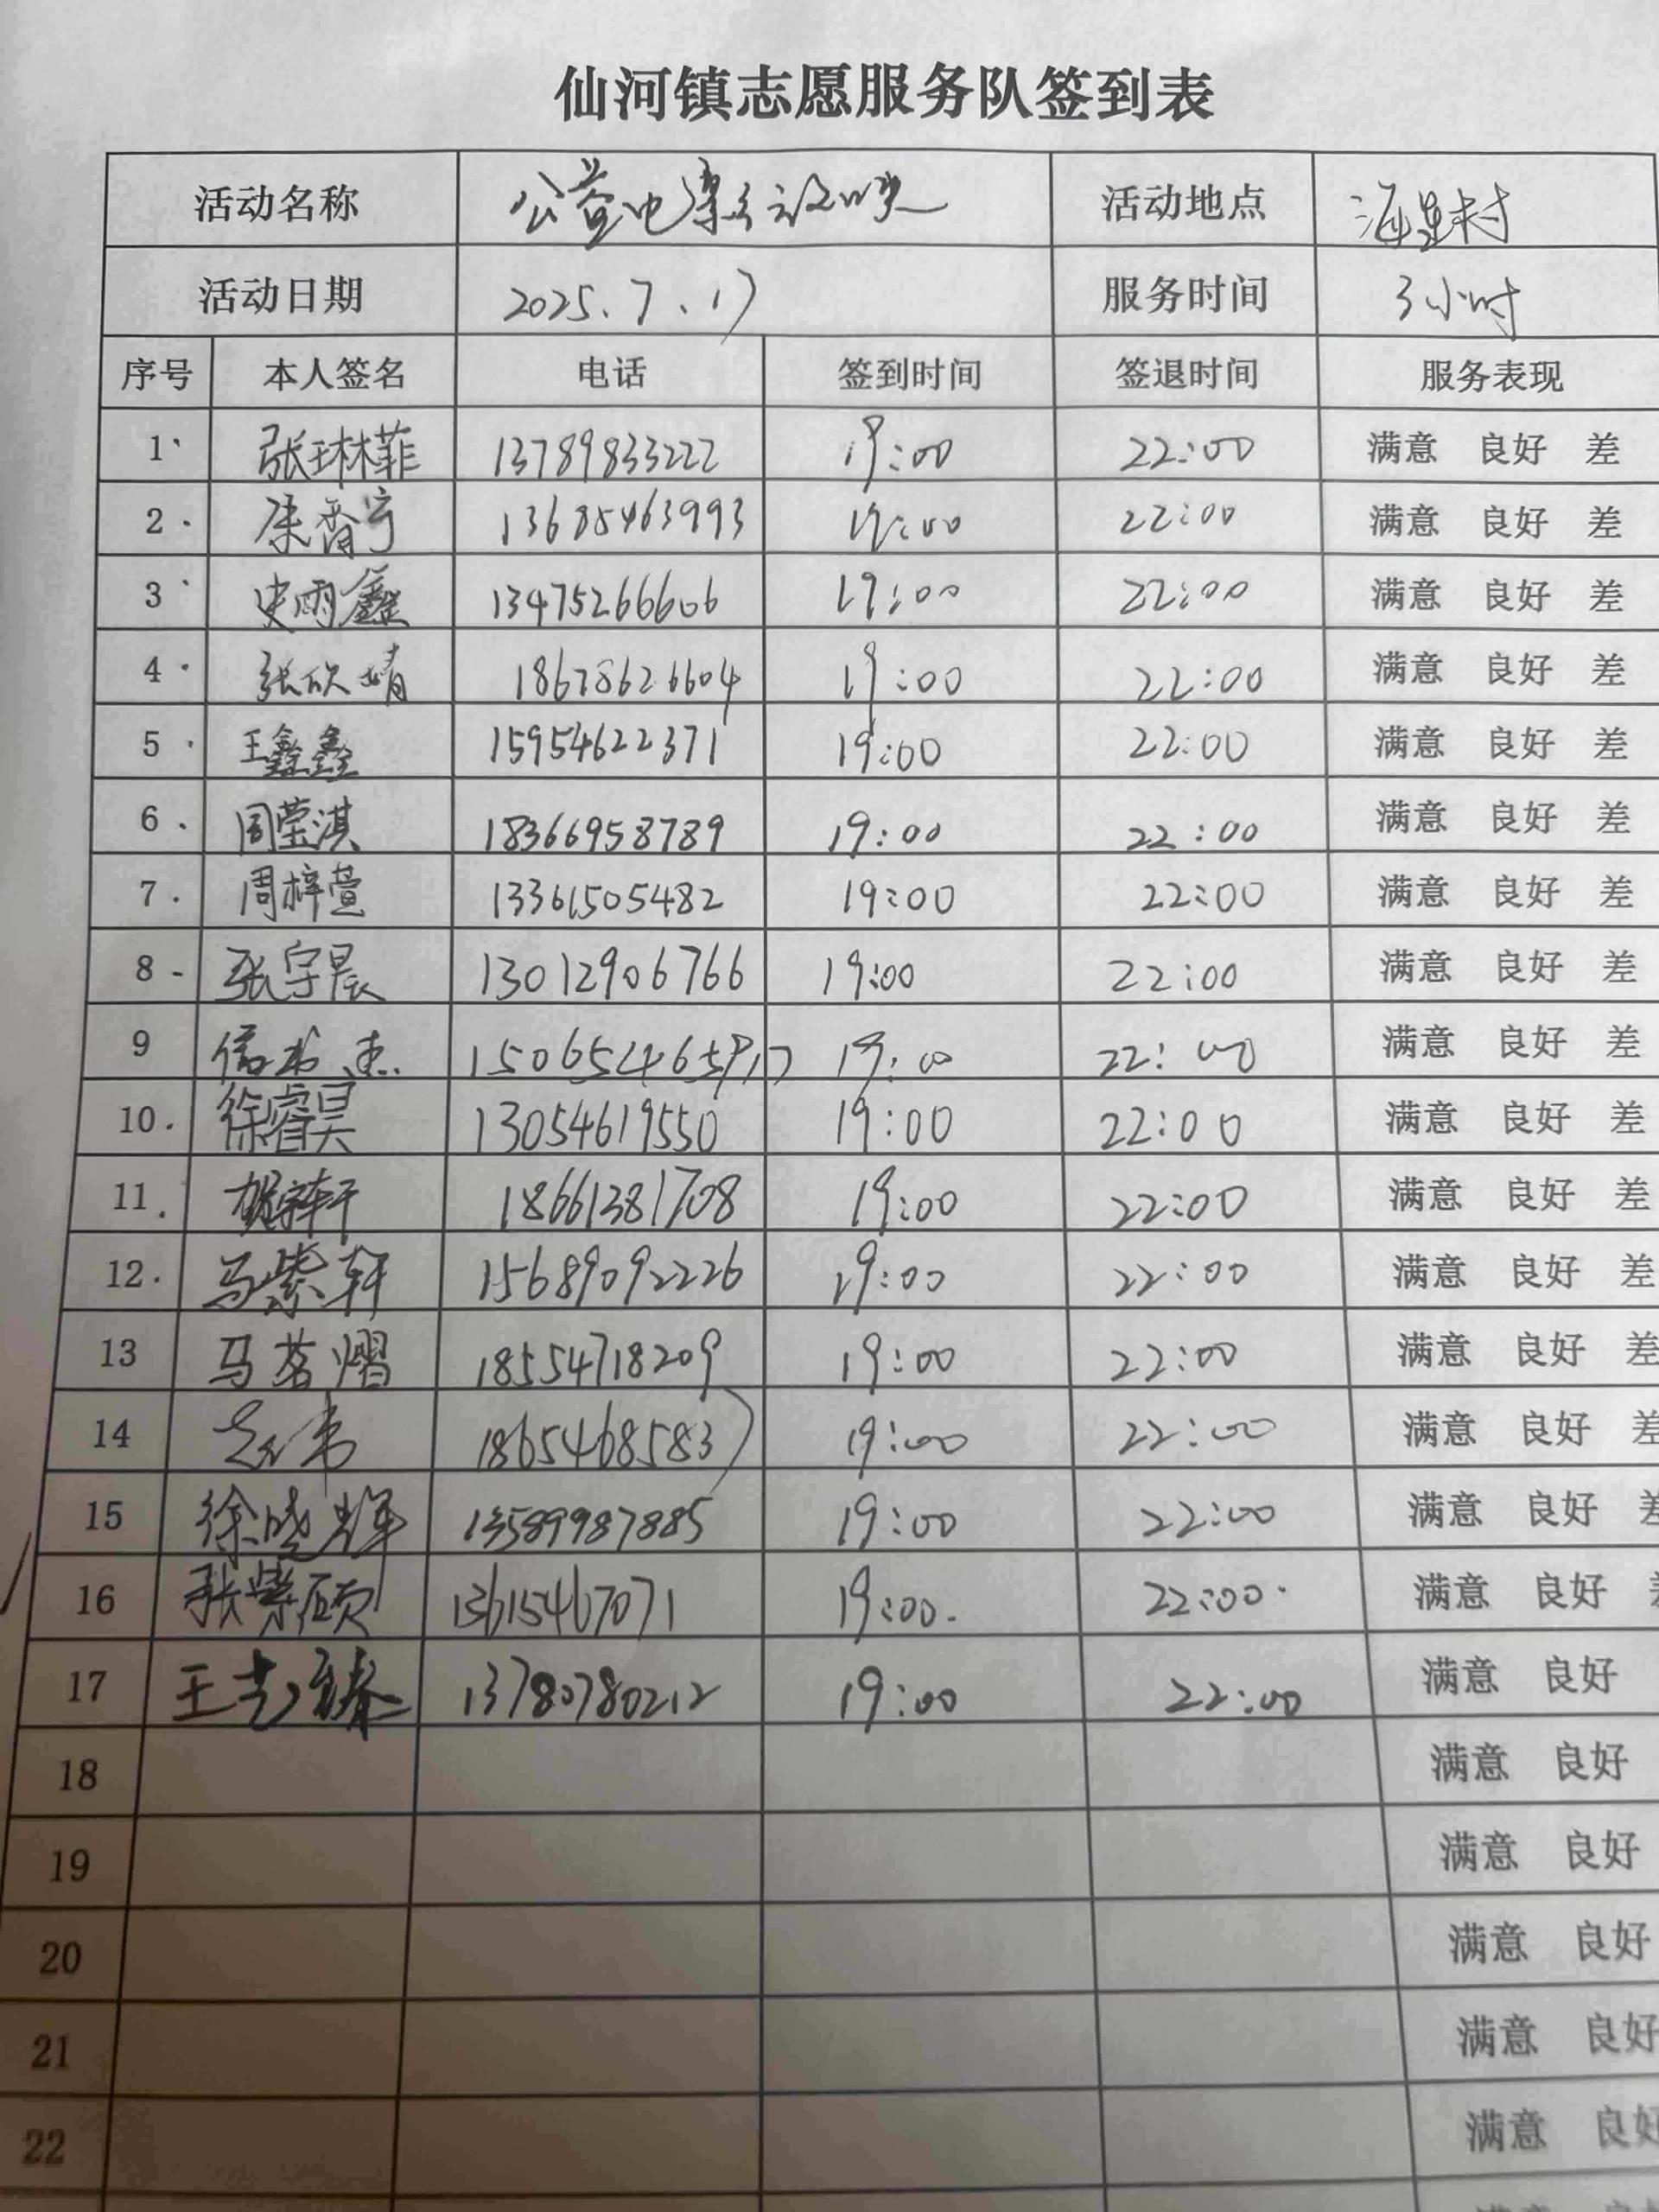 仙河镇志愿服务队签到表
活动名称 公益电影放映 活动地点 海星村
活动日期 2025.7.17 服务时间 3小时
序号 本人签名 电话 签到时间 签退时间 服务表现
1 张琳菲 13789833222 19:00 22:00 满意 良好 差
2 13685463993 19:00 22:00 满意 良好 差
3 史雨鑫 13475266606 19:00 22:00 满意 良好 差
4 张欣婧 18678626604 19:00 22:00 满意 良好 差
5 王鑫鑫 15954622371 19:00 22:00 满意 良好 差
6 周莹淇 18366958789 19:00 22:00 满意 良好 差
7 周梓萱 13361505482 19:00 22:00 满意 良好 差
8 张宇晨 13012906766 19:00 22:00 满意 良好 差
9 19:00 22:00 满意 良好 差
10 徐睿昊 13054619550 19:00 22:00 满意 良好 差
11 18661381708 19:00 22:00 满意 良好 差
12 马紫轩 15689092226 19:00 22:00 满意 良好 差
13 马茗熠 18554718209 19:00 22:00 满意 良好 差
14 19:00 22:00 满意 良好 差
15 徐晓辉 13589987885 19:00 22:00 满意 良好 差
16 张紫硕 13615467071 19:00 22:00 满意 良好
17 13780780212 19:00 22:00 满意 良好
18 满意 良好
19 满意 良好
20 满意 良好
21 满意 良好
22 满意 良好